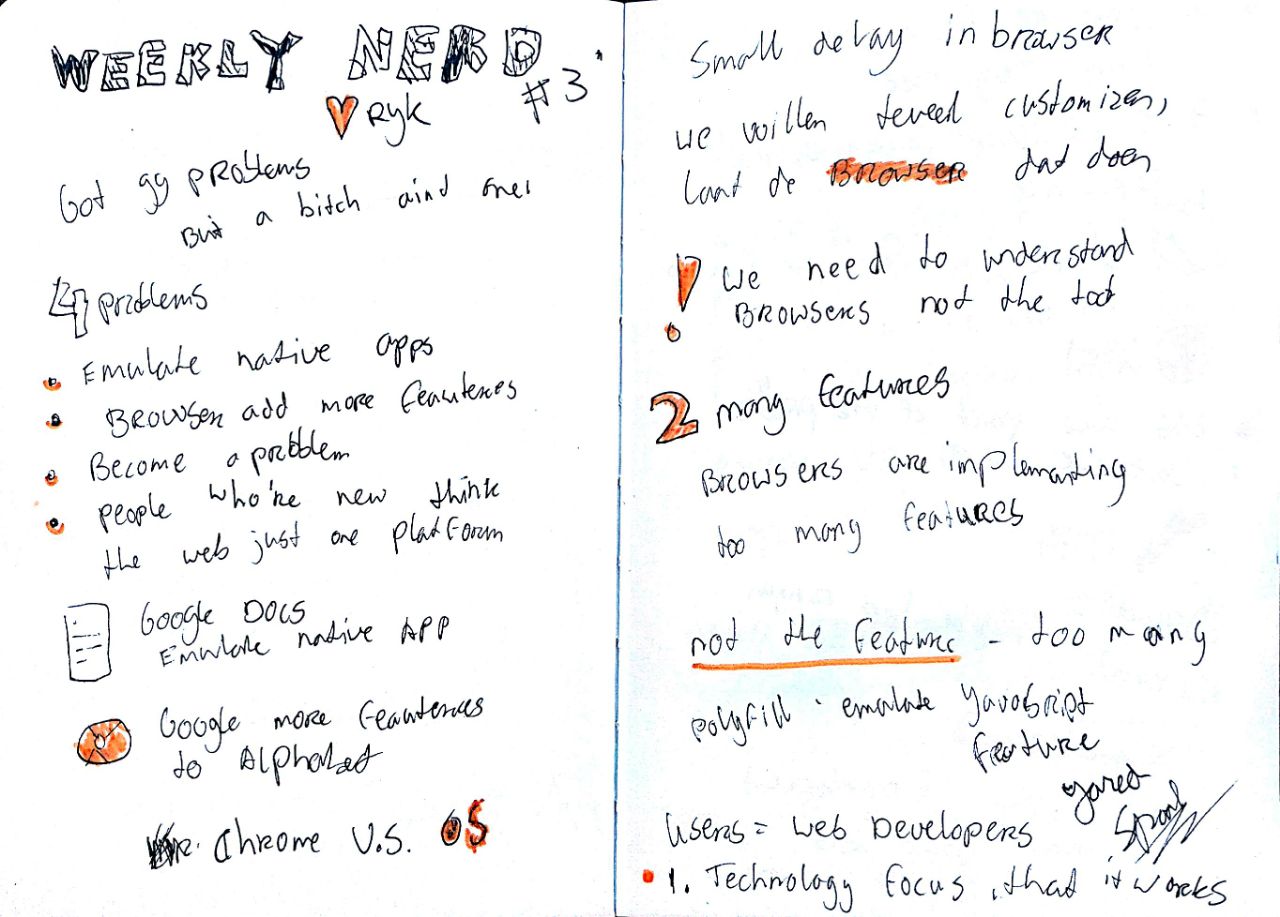 WEEKLY NERD
#3
Ryk
Got 99 problems
But a bitch aint one!
4 problems
Emulate native apps
Browser add more feautures
Become a problem
people who're new think
the web just one platform
Google Docs
Emulate native APP
Google more feautures
to Alphabet
Chrome V.S. OS
Small delay in browser
we willen teveel customizen,
laat de Browser dat doen
! We need to understand
Browsers not the tool
2 many features
Browsers are implementing
too many features
not the feature - too many
polyfill · emulate Javascript
feature
Jared
Spool
Users = web Developers
1. Technology focus, that it works